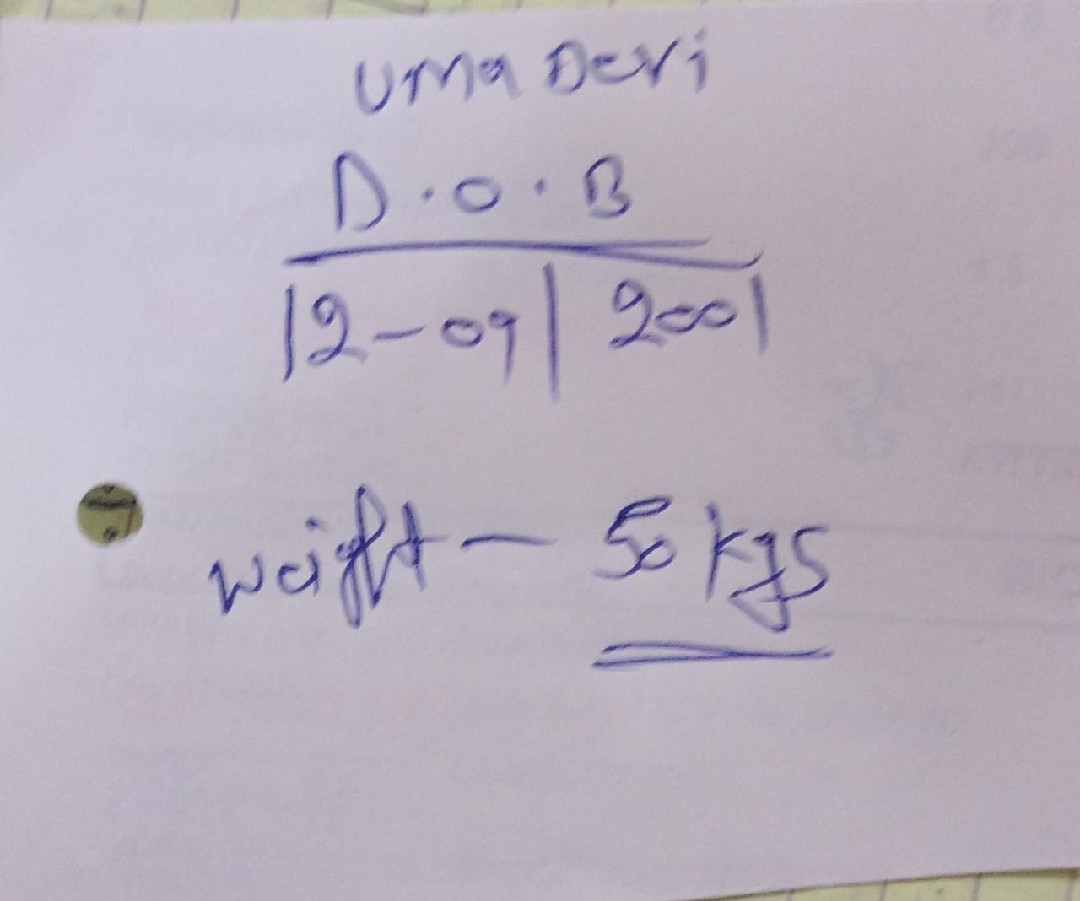 Uma Devi
D.O.B
12-09/2001
weight - 50 kgs